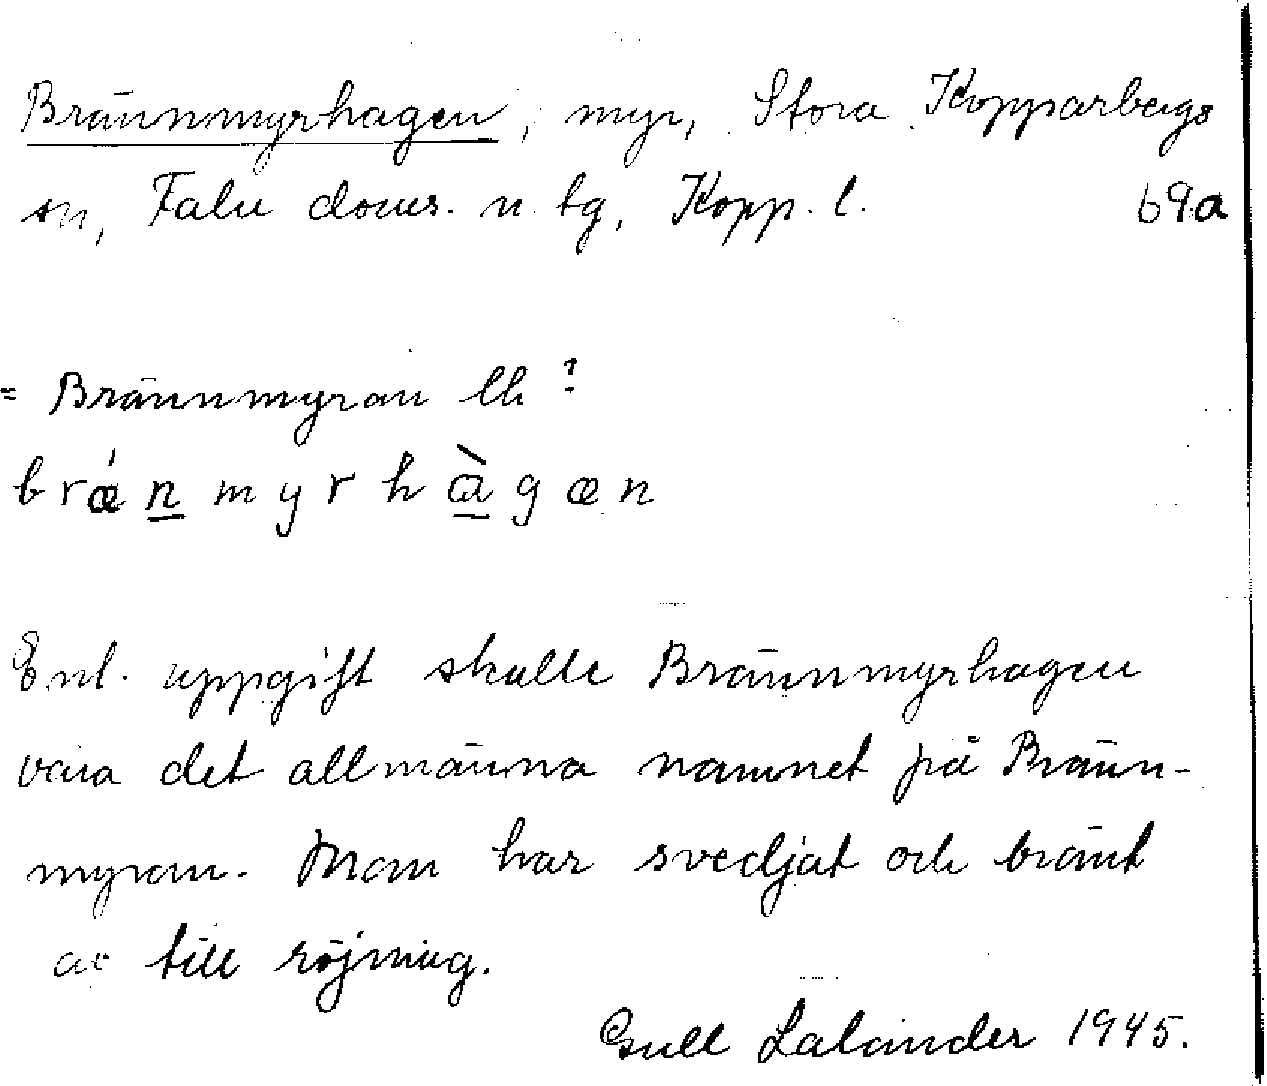 Brännmyrhagen, myr, Stora Kopparbergs
sn, Falu doms. n. tg, Kopp. l. 69a
= Brännmyran ell ?
brǽn̲myrhɑ̲̀gæn
Enl. uppgift skulle Brännmyrhagen
vara det allmänna namnet på Bränn-
myran. Man har svedjat och bränt
av till röjning.
Gull Lalander 1945.